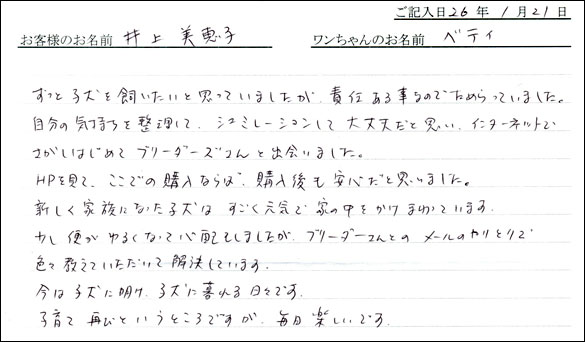 ご記入日26年1月21日
お客様のお名前 井上美恵子 ワンちゃんのお名前 ベティ
ずっと子犬を飼いたいと思っていましたが、責任ある事なのでためらっていました。
自分の気持ちを整理して、シュミレーションして大丈夫だと思い、インターネットで
さがしはじめてブリーダーズさんと出会いました。
HPを見て、ここでの購入ならば、購入後も安心だと思いました。
新しく家族になった子犬はすごく元気で家の中をかけまわっています。
少し便がゆるくなって心配をしましたが、ブリーダーさんとのメールのやりとりで
色々教えていただいて解決しています。
今は子犬に明け、子犬に暮れる日々です。
子育て再びというところですが、毎日楽しいです。